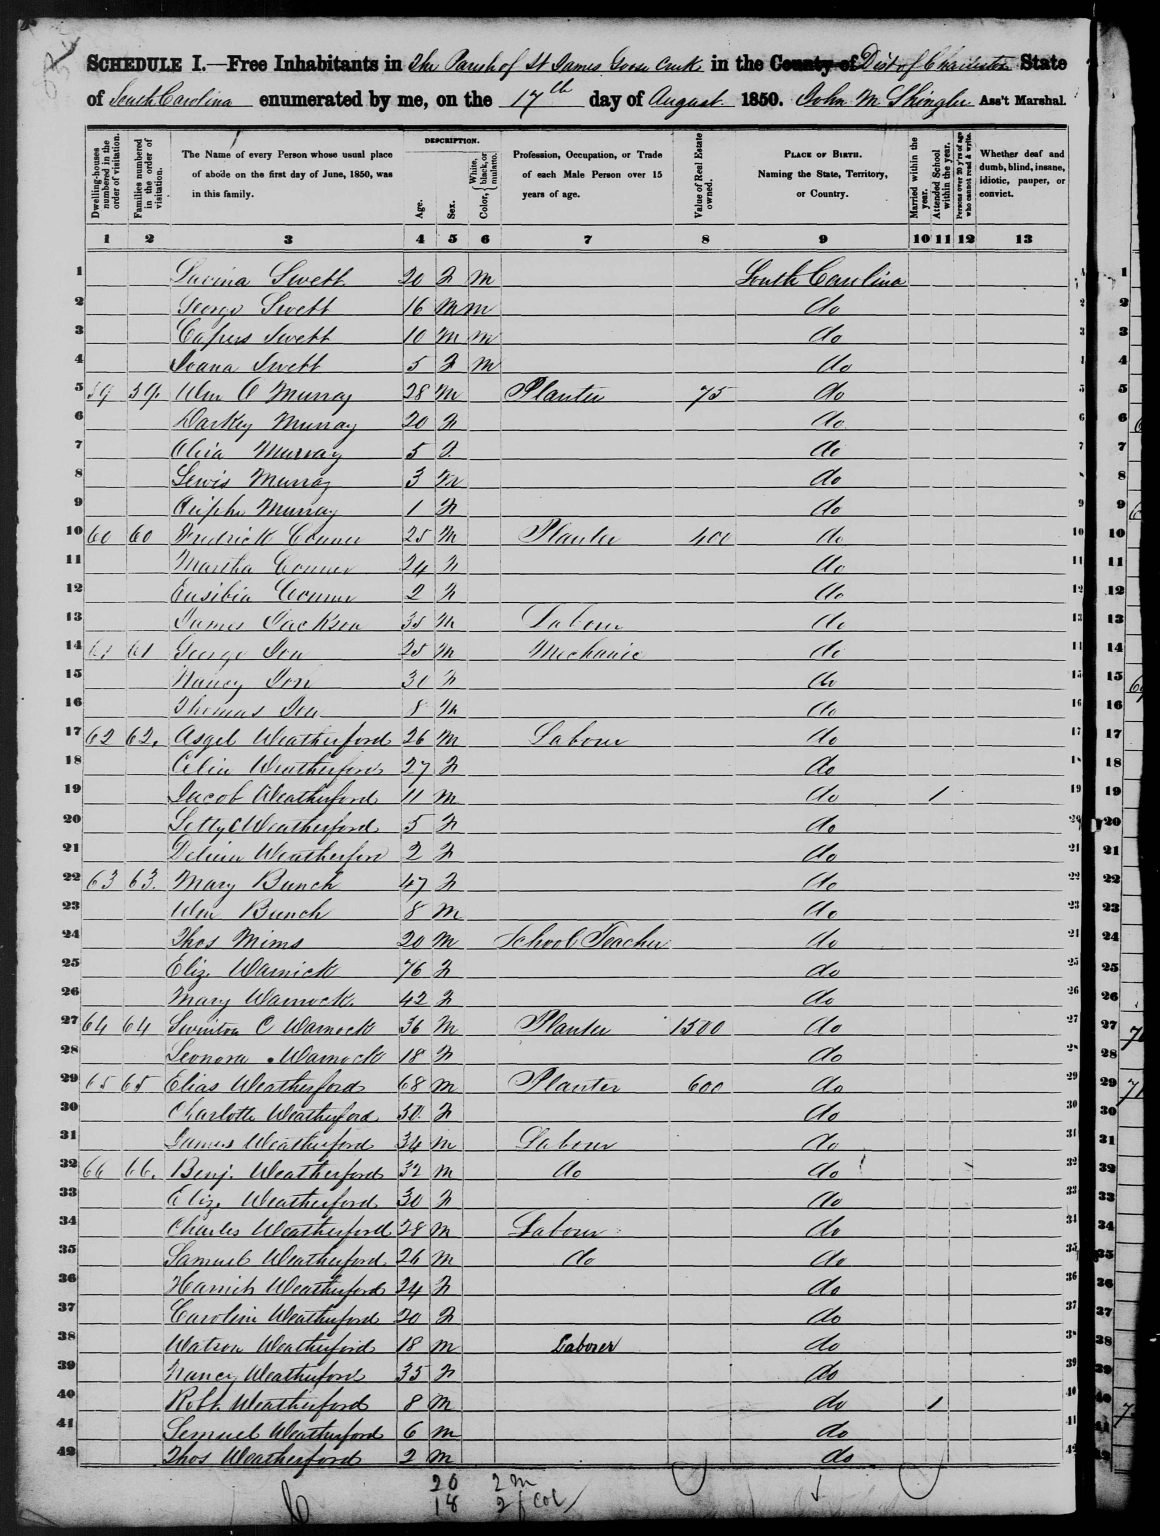 SCHEDULE I.—Free Inhabitants in The Parish of St James Goose Creek in the County of Dist of Charleston State
of South Carolina enumerated by me, on the 17th day of August 1850. John M Shingler Ass't Marshal.
Dwelling-houses numbered in the order of visitation.
Families numbered in the order of visitation.
The Name of every Person whose usual place of abode on the first day of June, 1850, was in this family.
DESCRIPTION.
Age.
Sex.
Color, { White, black, or mulatto.
Profession, Occupation, or Trade of each Male Person over 15 years of age.
Value of Real Estate owned.
PLACE OF BIRTH. Naming the State, Territory, or Country.
Married within the year.
Attended School within the year.
Persons over 20 y'rs of age who cannot read & write.
Whether deaf and dumb, blind, insane, idiotic, pauper, or convict.
1 2 3 4 5 6 7 8 9 10 11 12 13
1 Swett 20 F M South Carolina 1
2 George Swett 16 M M do 2
3 Capers Swett 10 M M do 3
4 Joana Swett 5 F M do 4
5 59 59 Wm O Murray 28 M Planter 75 do 5
6 Darkey Murray 20 F do 6
7 Murray 5 F do 7
8 Lewis Murray 3 M do 8
9 Murray 1 F do 9
10 60 60 Fredrick Conner 25 M Planter 400 do 10
11 Martha Conner 24 F do 11
12 Eusibia Conner 2 F do 12
13 James Jackson 35 M Labour do 13
14 61 61 George Ion 25 M Mechanic do 14
15 Nancy Ion 30 F do 15
16 Thomas Ion 8 M do 16
17 62 62. Asgel Weatherford 26 M Labour do 17
18 Celia Weatherford 27 F do 18
19 Jacob Weatherford 11 M do 1 19
20 Letty C Weatherford 5 F do 20
21 Weatherford 2 F do 21
22 63 63. Mary Bunch 47 F do 22
23 Wm Bunch 8 M do 23
24 Thos Mims 20 M School Teacher do 24
25 Eliz Warnick 76 F do 25
26 Mary Warnock 42 F do 26
27 64 64 Swinton C Warnock 36 M Planter 1500 do 27
28 Leonora Warnock 18 F do 28
29 65 65 Elias Weatherford 68 M Planter 600 do 29
30 Charlotte Weatherford 50 F do 30
31 James Weatherford 34 M Labour do 31
32 66 66. Benj. Weatherford 32 M do do 32
33 Eliz Weatherford 30 F do 33
34 Charles Weatherford 28 M Labour do 34
35 Samuel Weatherford 26 M do do 35
36 Harriet Weatherford 24 F do 36
37 Caroline Weatherford 20 F do 37
38 Watson Weatherford 18 M Laborer do 38
39 Nancy Weatherford 35 F do 39
40 Robt. Weatherford 8 M do 1 40
41 Lemuel Weatherford 6 M do 41
42 Thos Weatherford 2 M do 42
20 2 m
18 2 f Col